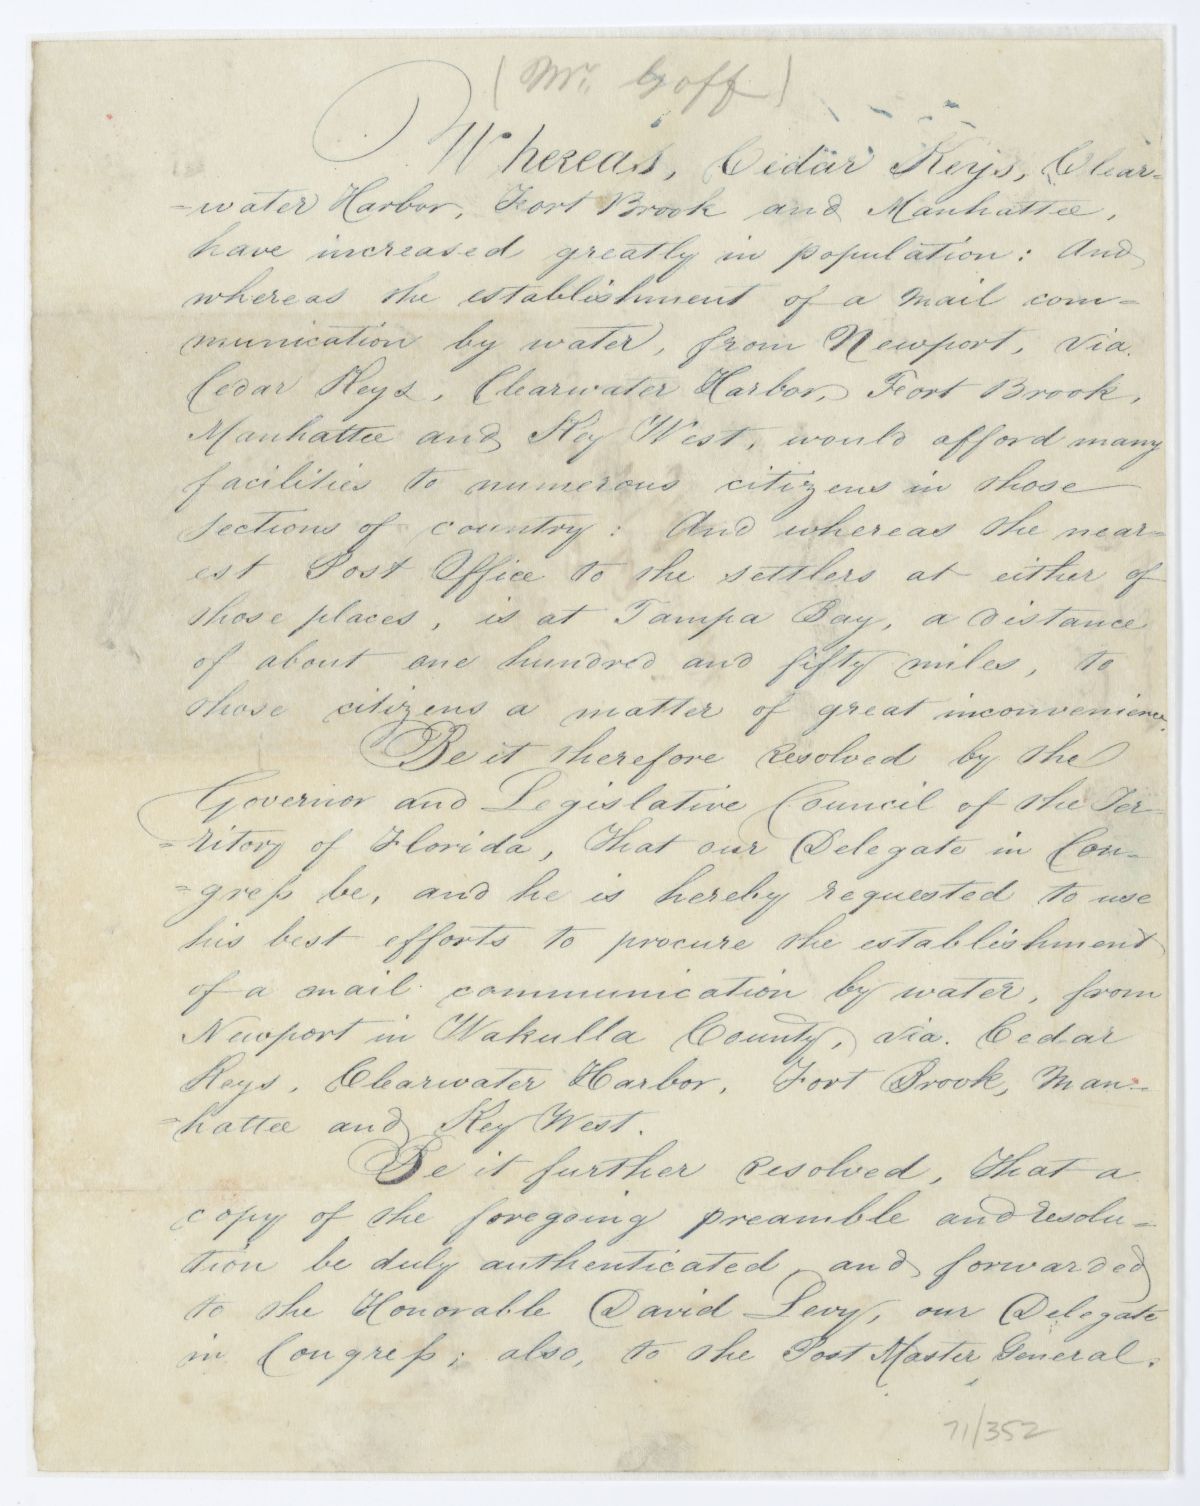 (Mr. Goff)
Whereas, Cedar Keys, Clear=
=water Harbor, Fort Brook and Manhattee,
have increased greatly in population: And
whereas the establishment of a mail com=
munication by water, from Newport, via.
Cedar Keys, Clearwater Harbor, Fort Brook,
Manhattee and Key West, would afford many
facilities to numerous citizens in those
sections of country: And whereas the near=
est Post Office to the settlers at either of
those places, is at Tampa Bay, a distance
of about one hundred and fifty miles, to
those citizens a matter of great inconvenience.
Be it therefore resolved by the
Governor and Legislative Council of the Ter=
=ritory of Florida, That our Delegate in Con=
=gress be, and he is hereby requested to use
his best efforts to procure the establishment
of a mail communication by water, from
Newport in Wakulla County, via. Cedar
Keys, Clearwater Harbor, Fort Brook, Man=
=hattee and Key West.
Be it further resolved, That a
copy of the foregoing preamble and resolu=
tion be duly authenticated, and forwarded
to the Honorable David Levy, our Delegate
in Congress; also, to the Post Master General.
71/352